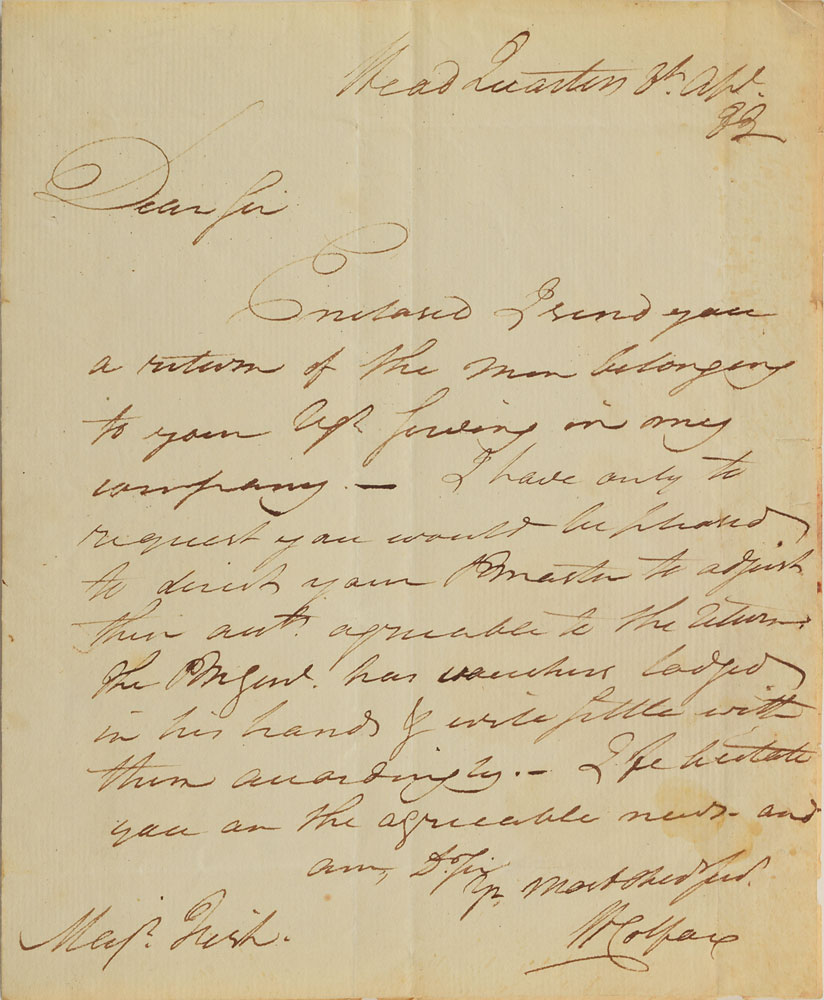 Head Quarters 8th. Apl.
83
Dear Sir
Enclosed I send you
a return of the men belonging
to your Rgt. serving in my
company. — I have only to
request you would be pleased
to direct your PMaster to adjust
their acts. agreeable to the return.
the PMGenl. has vouchers lodged
in his hands & will settle with
them accordingly. — I felicitate
you on the agreeable news — and
am, D. Sir
Yr. Most Obed. Sert.
WColfax
Majr. Fish.